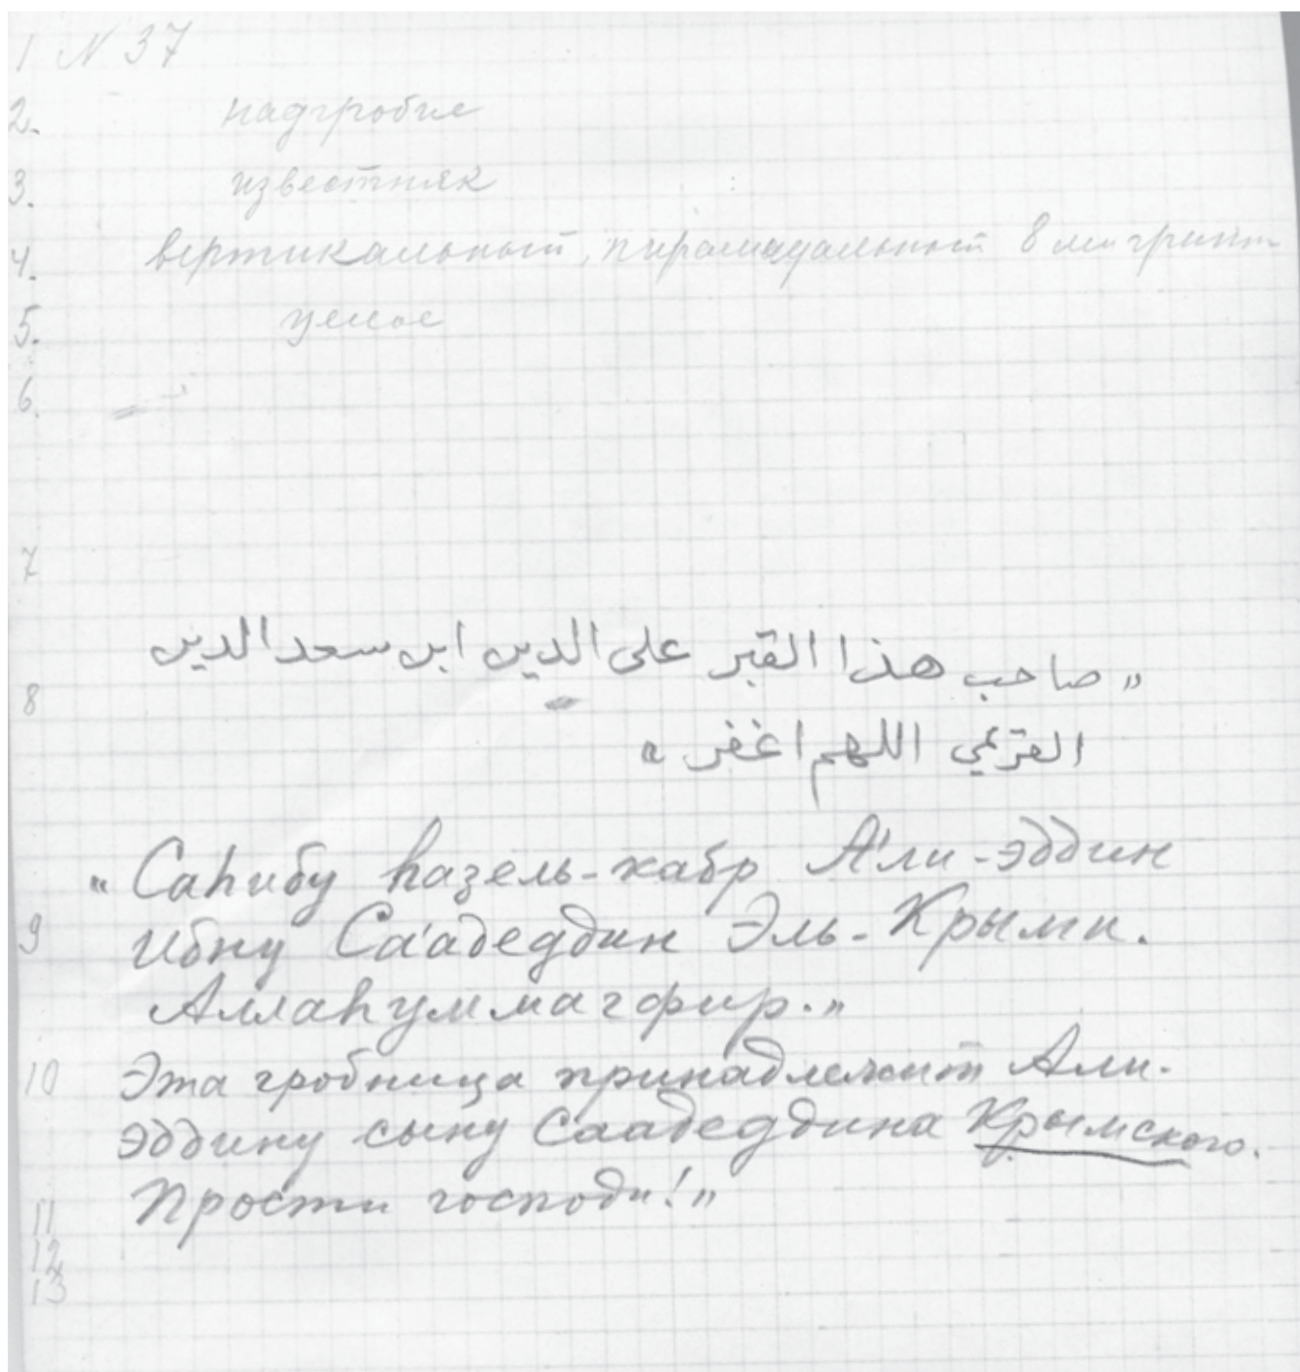 1 N 37
2. надгробие
3. известняк
4. вертикальный, пирамидальный 8ми гранн
5. целое
6.
7
8 „ صاحب هذا القبر على الدين ابن سعد الدين
القريمي اللهم اغفر "
„ Саhибу hазель-кабр А'ли-эддин
9 ибну Са'адеддин Эль-Крыми.
Аллаhуммагфир."
10 Эта гробница принадлежит Али-
эддину сыну Саадеддина Крымского.
11 Прости господи!"
12
13